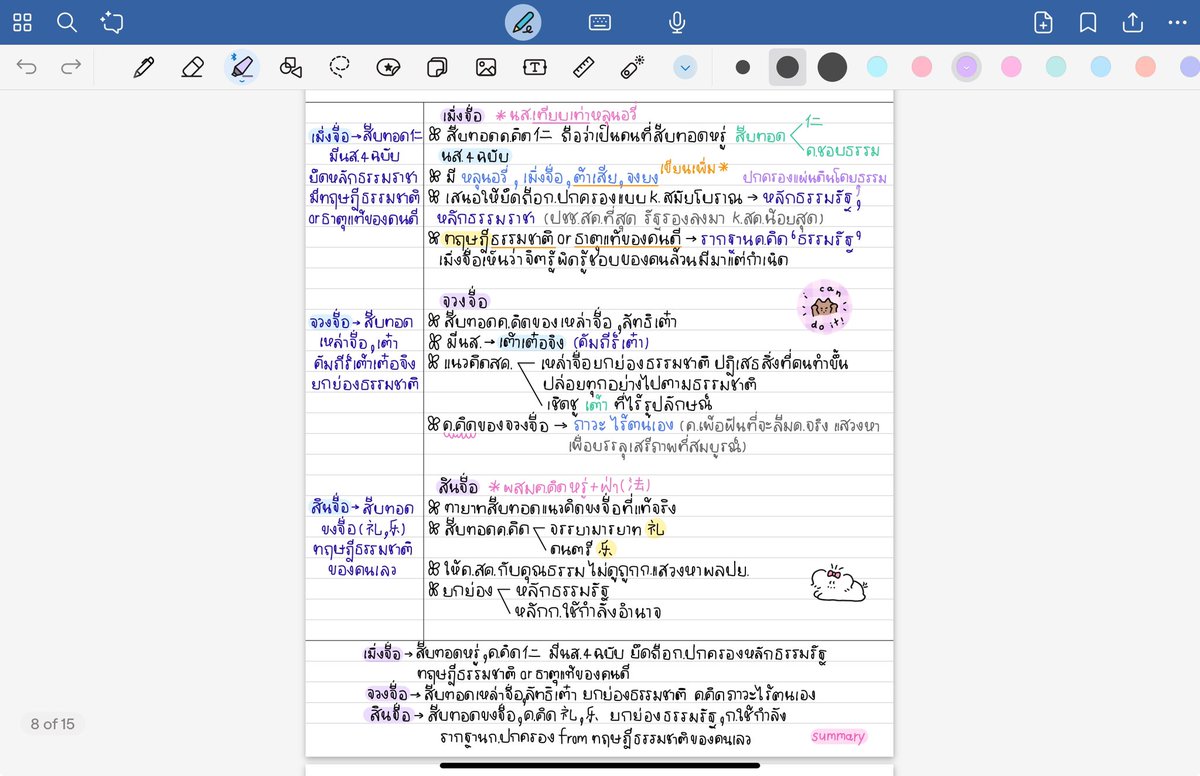 เมิ่งจื่อ *นส.เทียบเท่าหลุนอวี่
เมิ่งจื่อ→สืบทอด仁
มีนส.4 ฉบับ
ยึดหลักธรรมราชา
มีทฤษฎีธรรมชาติ
or ธาตุแท้ของคนดี
สืบทอดค.คิด仁 ถือว่าเป็นคนที่สืบทอดหรู่ สืบทอด 仁
ค.ชอบธรรม
นส.4 ฉบับ
มี หลุนอวี่ , เมิ่งจื่อ, ต้าเสีย, จงยง เขียนเพิ่ม* ปกครองแผ่นดินโดยธรรม
เสนอให้ยึดถือก.ปกครองแบบ K.สมัยโบราณ → หลักธรรมรัฐ,
หลักธรรมราชา (ปชช.สค.ที่สุด รัฐรองลงมา K.สค.น้อยสุด)
ทฤษฎีธรรมชาติ or ธาตุแท้ของคนดี → รากฐานค.คิด "ธรรมรัฐ"
เมิ่งจื่อเห็นว่าจิตรู้ผิดรู้ชอบของคนล้วนมีมาแต่กำเนิด
i can
do it!
จวงจื่อ
จวงจื่อ→สืบทอด
เหล่าจื่อ,เต๋า
คัมภีร์เต้าเต๋อจิง
ยกย่องธรรมชาติ
สืบทอดค.คิดของเหล่าจื่อ ,ลัทธิเต๋า
มีนส.→เต้าเต๋อจิง (คัมภีร์เต๋า)
แนวคิดสค. เหล่าจื่อยกย่องธรรมชาติ ปฏิเสธสิ่งที่คนทำขึ้น
ปล่อยทุกอย่างไปตามธรรมชาติ
เชิดชู เต๋า ที่ไร้รูปลักษณ์
ค.คิดของจวงจื่อ → ภาวะ ไร้ตนเอง (ค.เพ้อฝันที่จะลืมค.จริง แสวงหา
เพื่อบรรลุเสรีภาพที่สมบูรณ์)
สินจื่อ *ผสมค.คิด หรู่+ฝ่า(法)
สินจื่อ→สืบทอด
ขงจื่อ(礼,乐)
ทฤษฎีธรรมชาติ
ของคนเลว
ทายาทสืบทอดแนวคิดขงจื่อที่แท้จริง
สืบทอดค.คิด จรรยามารยาท 礼
ดนตรี 乐
ให้ค.สค.กับคุณธรรม ไม่ดูถูกก.แสวงหาผลปย.
ยกย่อง หลักธรรมรัฐ
หลักก.ใช้กำลังอำนาจ
เมิ่งจื่อ→สืบทอดหรู่,ค.คิด仁 มีนส.4 ฉบับ ยึดถือก.ปกครองหลักธรรมรัฐ
ทฤษฎีธรรมชาติ or ธาตุแท้ของคนดี
จวงจื่อ→สืบทอดเหล่าจื่อ,ลัทธิเต๋า ยกย่องธรรมชาติ ค.คิดภาวะไร้ตนเอง
สินจื่อ→สืบทอดขงจื่อ,ค.คิด礼,乐 ยกย่องธรรมรัฐ,ก.ใช้กำลัง
รากฐานก.ปกครอง from ทฤษฎีธรรมชาติของคนเลว
summary
8 of 15